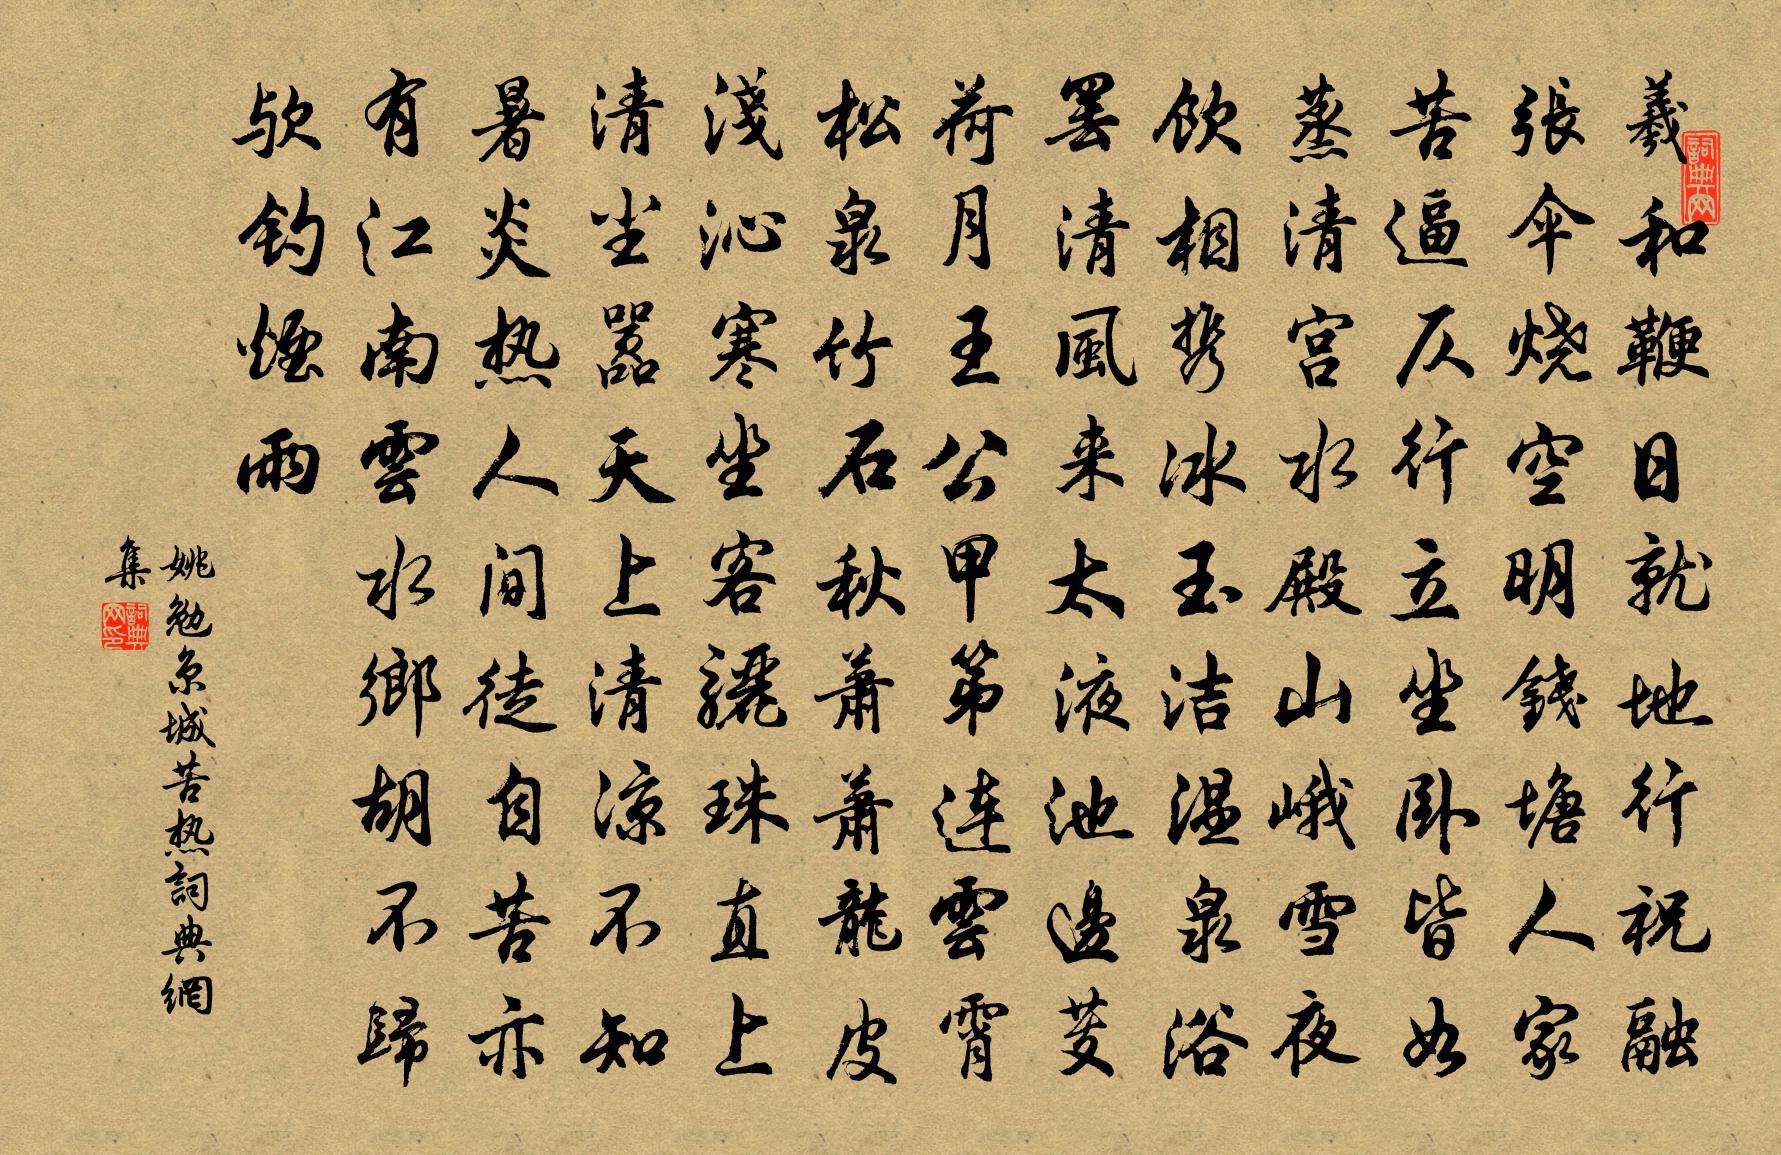 羲和鞭日就地行祝融
張伞烧空明錢塘人家
苦逼仄行立坐卧皆如
蒸清宫水殿山峨雪夜
飲相携冰玉洁温泉浴
罢清風来太液池邊芰
荷月王公甲第連雲霄
松泉竹石秋萧萧龍皮
淺沁寒坐客驪珠直上
清尘嚣天上清涼不知
暑炎热人间徒自苦亦
有江南雲水鄉胡不歸
欤钓煙雨
姚勉京城苦热詞典網
集
詞典网
詞典网印